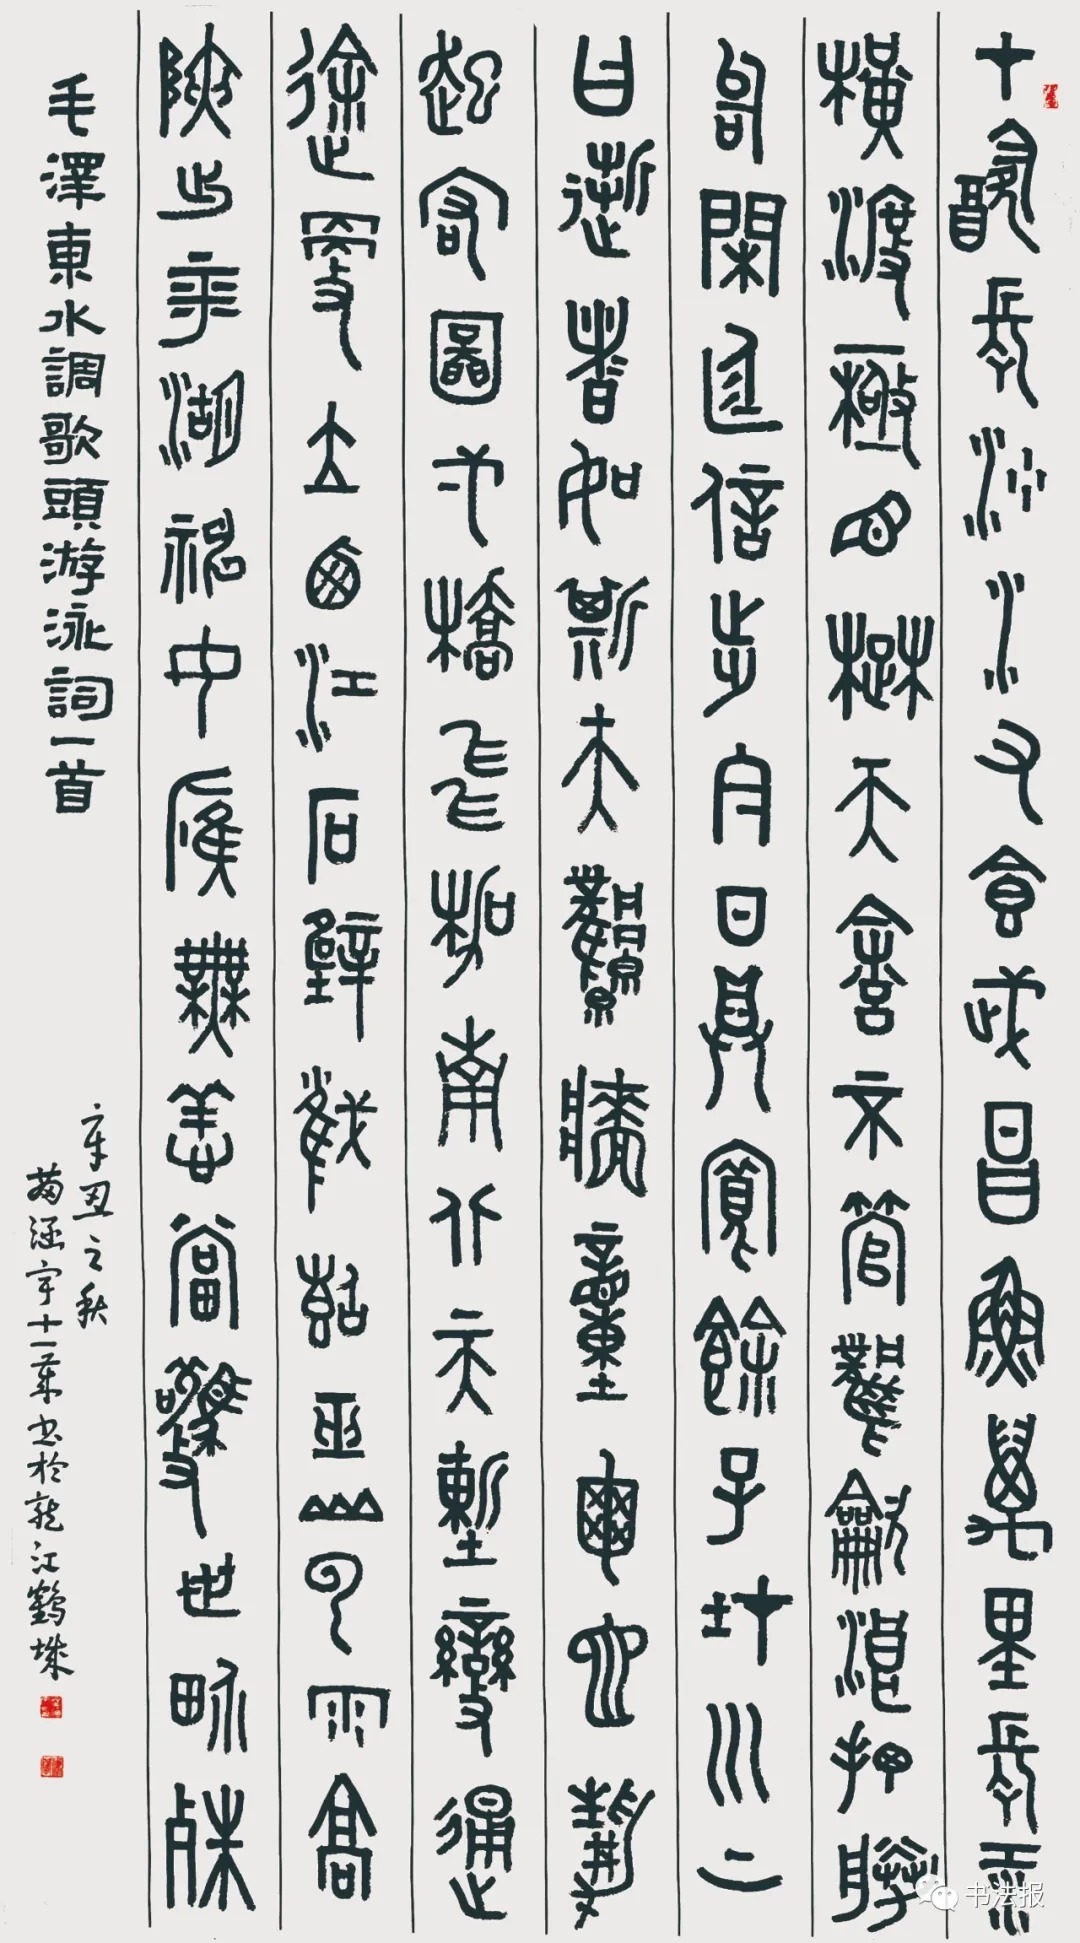 才飲長沙水又食武昌魚萬里長江
橫渡極目楚天舒不管風吹浪打勝
似閒庭信步今日得寬餘子在川上
曰逝者如斯夫風檣動龜蛇靜
起宏圖一橋飛架南北天塹變通
途更立西江石壁截斷巫山雲雨高
峽出平湖神女應無恙當驚世界殊
毛澤東水調歌頭游泳詞一首
辛丑之秋
苗涵宇十一书於龍江鶴城
书法报